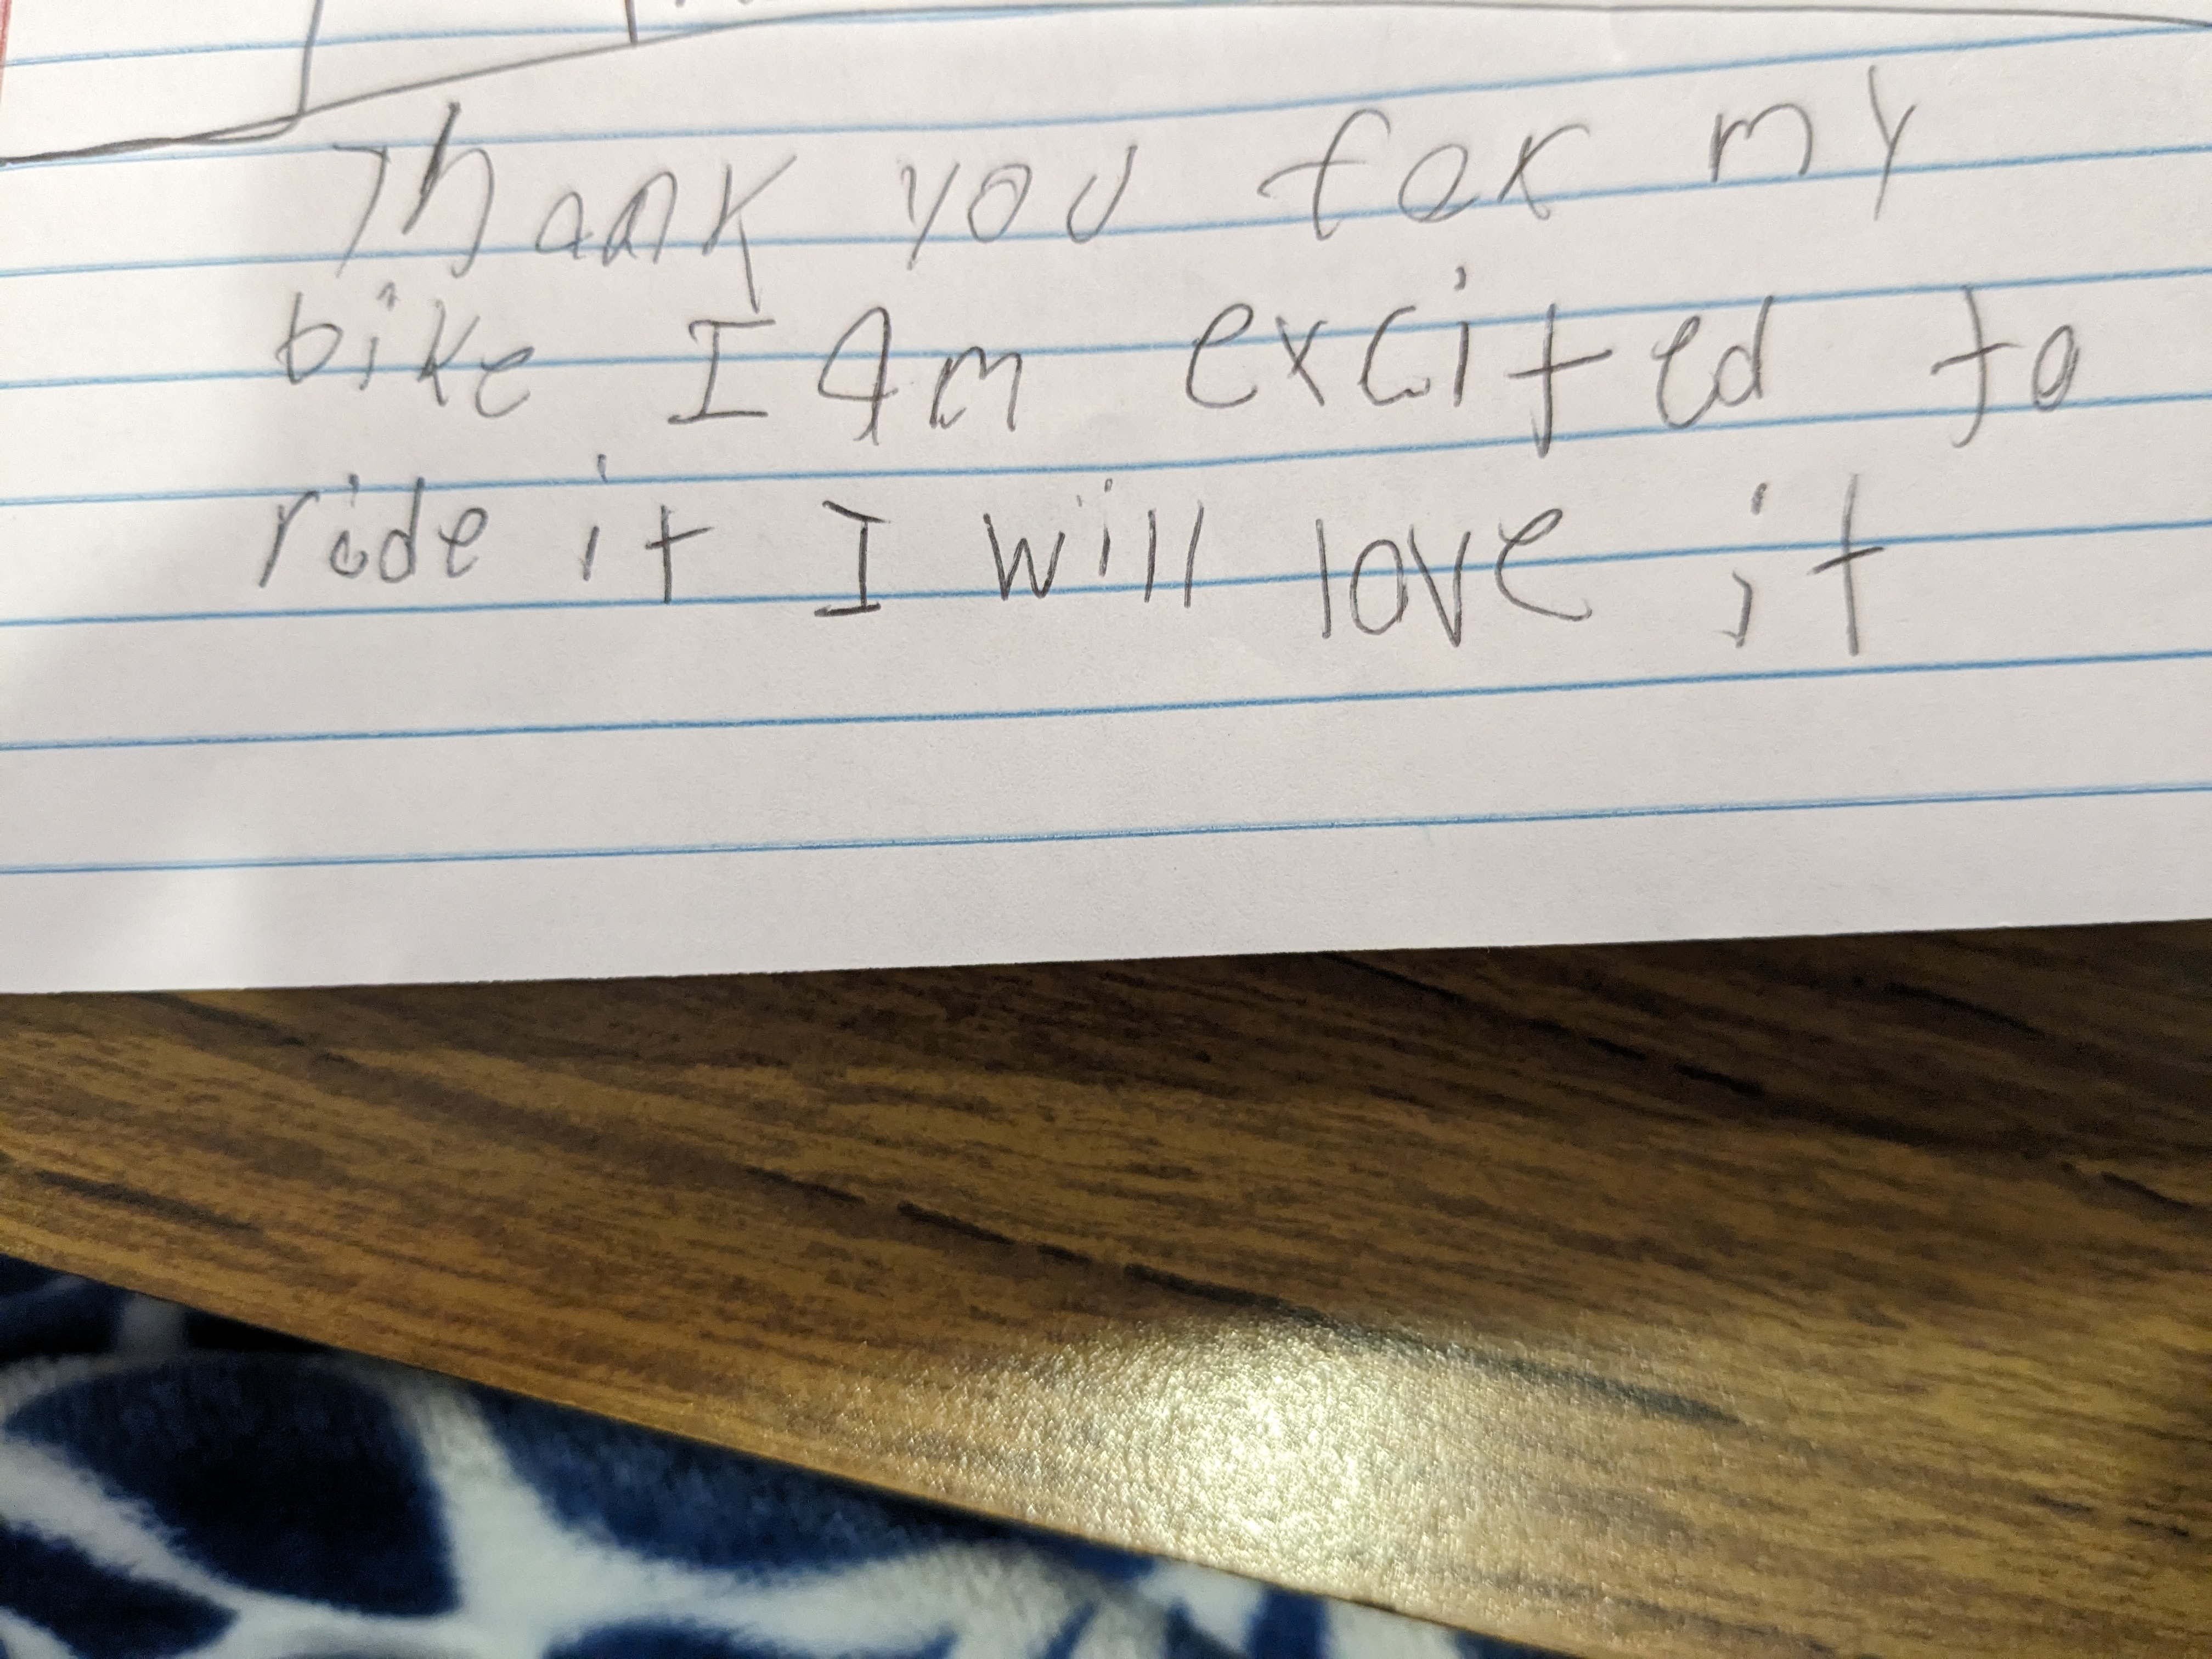 Thank you for my
bike I Am excited to
ride it I will love it